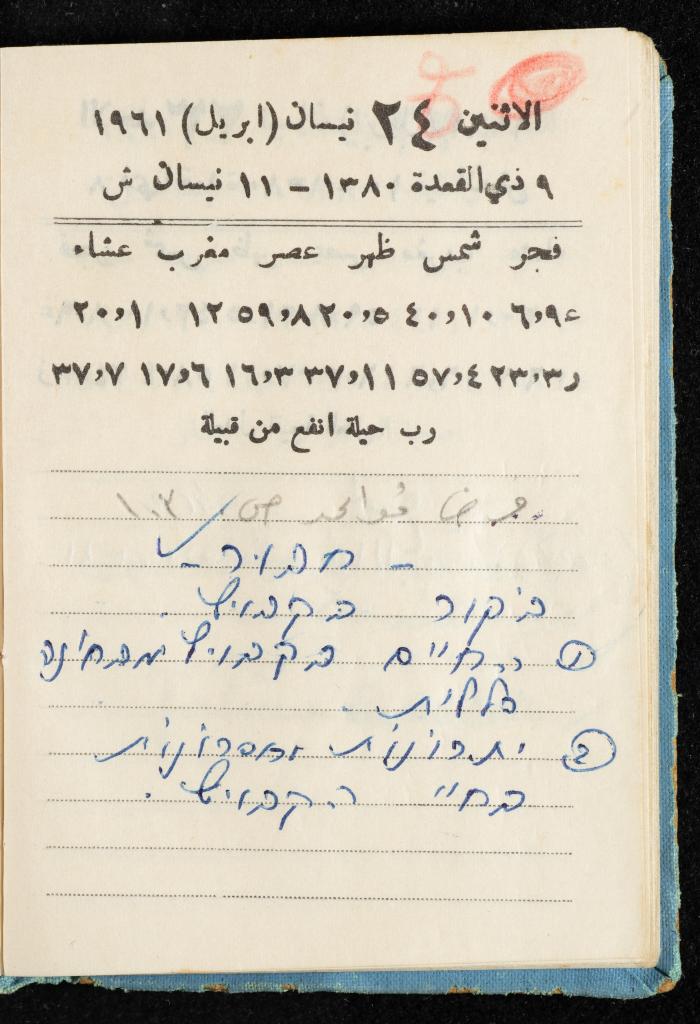 الاثنين ٢٤ نيسان (ابريل) ١٩٦١
٩ ذي القعدة ١٣٨٠ - ١١ نيسان ش
فجر شمس ظهر عصر مغرب عشاء
٦،٩ ١٠،٤٠ ٥،٢٠ ٨،٥٩ ١٢ ١،٢٠
٣،٢٣ ٤،٥٧ ١١،٣٧ ٣،١٦ ٦،١٧ ٧،٣٧
رب حيلة انفع من قبيلة
قواعد ص ١٠٣
- חבור -
ביקור בקבוץ.
① החיים בקבוץ מבחינה
כללית.
② יתרונות וחסרונות
בחיי הקבוץ.